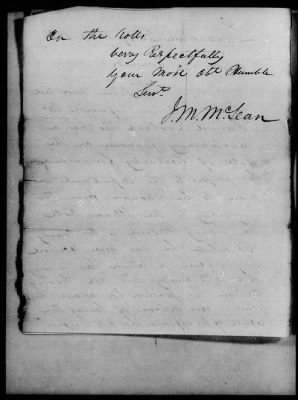 On the rolls
very Respectfully
Your Most obt Humble
Servt
J. M. McLean